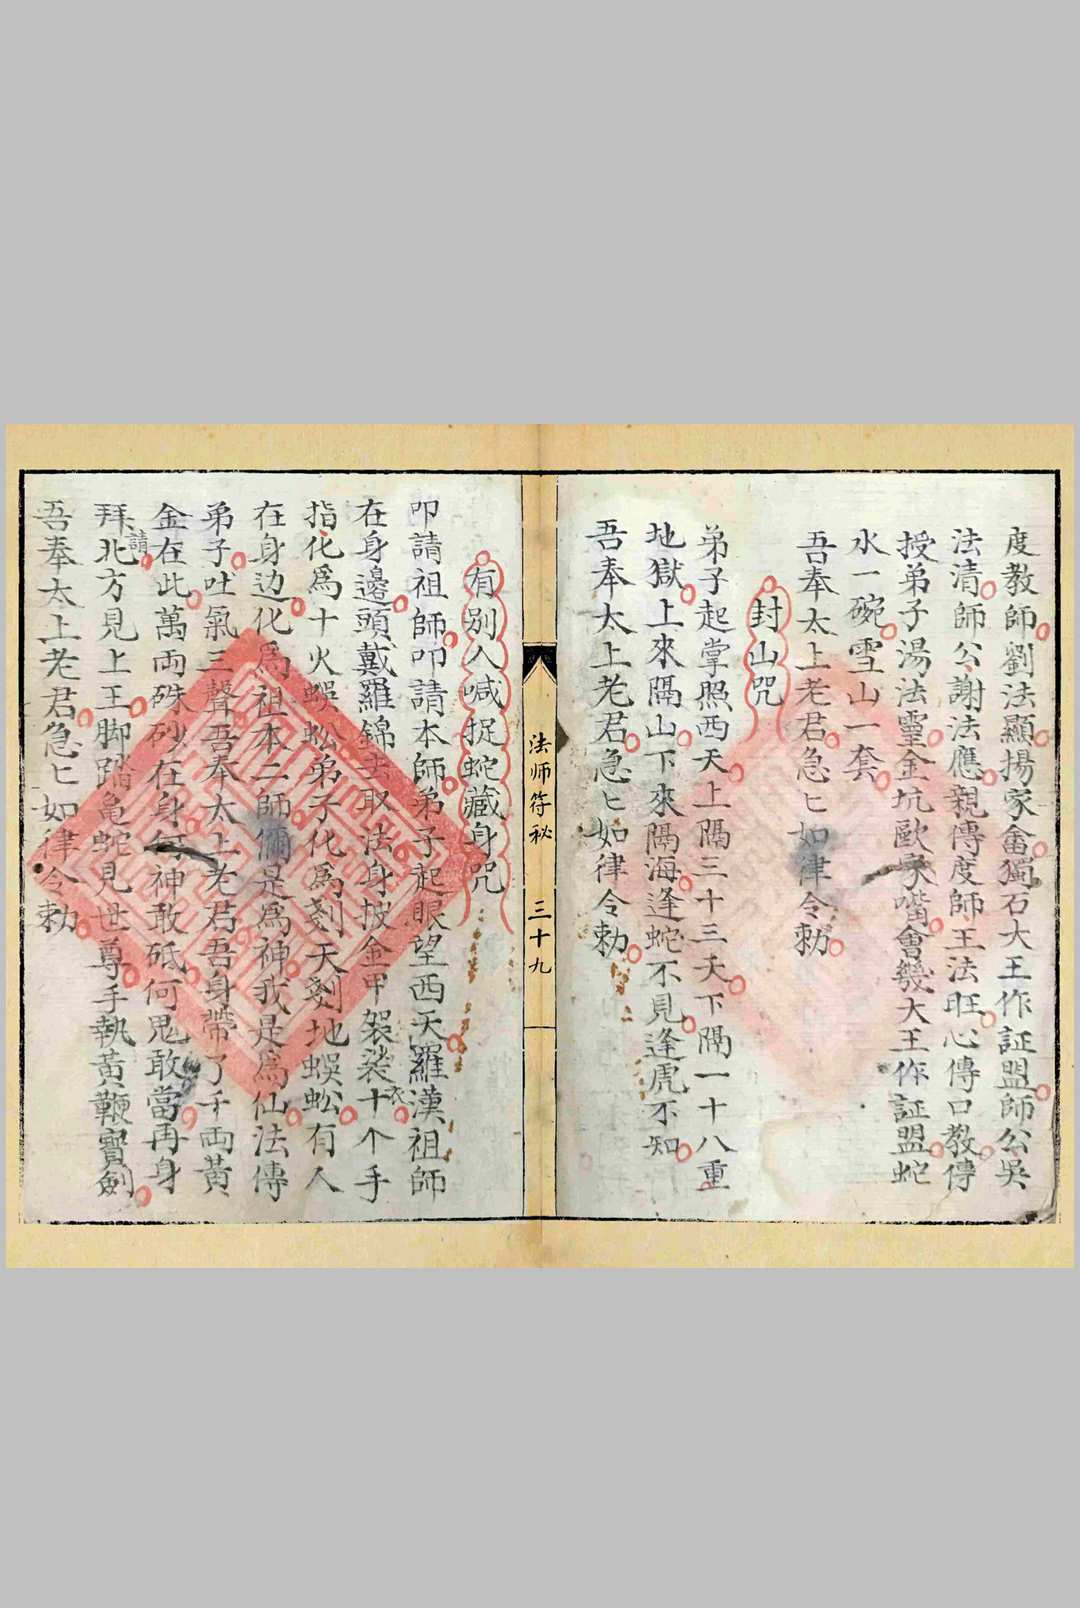 度教師劉法顯揚家畬獨石大王作証盟師公吳
法清師公謝法應親傳度師王法旺心傳口教傳
授弟子湯法靈金坑歐家嘴會幾大王作証盟蛇
水一碗雪山一套
吾奉太上老君急匕如律令勅
封山咒
弟子起掌照西天上隔三十三天下隔一十八重
地獄上來隔山下來隔海逢蛇不見逢虎不知
吾奉太上老君急匕如律令勅
法师符秘 三十九
有別人喊捉蛇藏身咒
叩請祖師叩請本師弟子起眼望西天羅漢祖師
在身邊頭戴羅錦去取法身披金甲袈裟衣十个手
指化爲十火蜈蚣弟子化爲刻天刻地蜈蚣有人
在身边化爲祖本二師儞是爲神我是爲仙法傳
弟子吐氣三聲吾奉太上老君吾身帶了千両黃
金在此萬両硃砂在身何神敢砥何鬼敢當再身
拜請北方見上王脚踏亀蛇見世尊手執黃鞭寶劍
吾奉太上老君急匕如律令勅